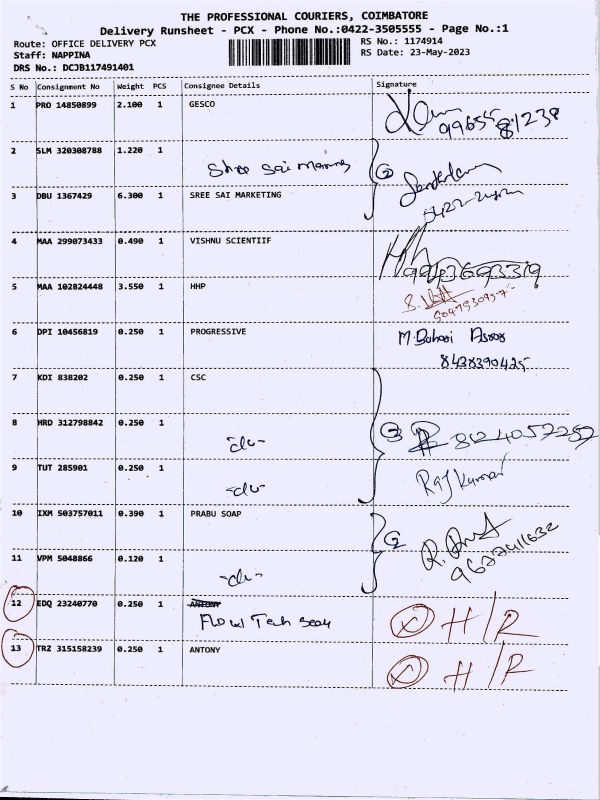 THE PROFESSIONAL COURIERS, COIMBATORE
Delivery Runsheet - PCX - Phone No.:0422-3505555 - Page No.:1
Route: OFFICE DELIVERY PCX
RS No.: 1174914
Staff: NAPPINA
RS Date: 23-May-2023
DRS No.: DCJB117491401
S No Consignment No Weight PCS Consignee Details Signature
1 PRO 14850899 2.100 1 GESCO
2 SLM 320308788 1.220 1 Shree Sai
3 DBU 1367429 6.300 1 SREE SAI MARKETING
4 MAA 299073433 0.490 1 VISHNU SCIENTIIF
9943693319
5 MAA 102824448 3.550 1 HHP
6 DPI 10456819 0.250 1 PROGRESSIVE
8438390425
7 KDI 838202 0.250 1 CSC
8 HRD 312798842 0.250 1 -do-
9 TUT 285901 0.250 1 -do-
Rajkumar
10 IXM 503757011 0.390 1 PRABU SOAP
11 VPM 5048866 0.120 1 -do-
12 EDQ 23240770 0.250 1 ANTONY
Flow Tech H/R
13 TRZ 315158239 0.250 1 ANTONY H/R